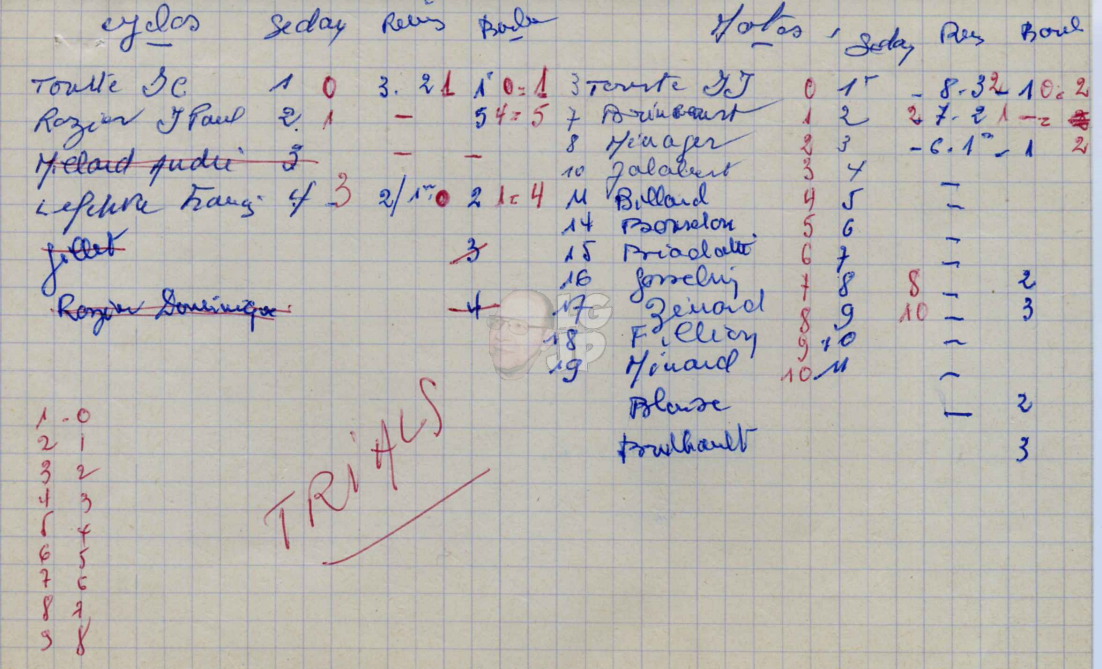 cyclos Seday Reims Boul
Motos Seday Reims Boul
Tourte JC 1 0 3. 2 1 1r 0 = 1
3 Tourte JJ 0 1r - 8 - 3 2 - 1 0 = 2
Rozier J Paul 2. 1 - 5 4 = 5
7 1 2 2 7 - 2 1 - =
Millard André 3 - -
8 Ménager 2 3 - 6 - 1r - 1 2
10 Jalabert 3 4 -
Lefebvre Franç 4 3 2/1r 0 2 1 = 4
11 Billard 4 5 -
14 5 6 -
Gillet 3
15 6 7 -
16 Gosselin 7 8 8 - 2
Rozier Dominique - 4
17 Zénard 8 9 10 - 3
18 9 10 -
19 Ménard 10 11 -
Blaise - 2
3
TRIALS
1 - 0
2 1
3 2
4 3
5 4
6 5
7 6
8 7
9 8